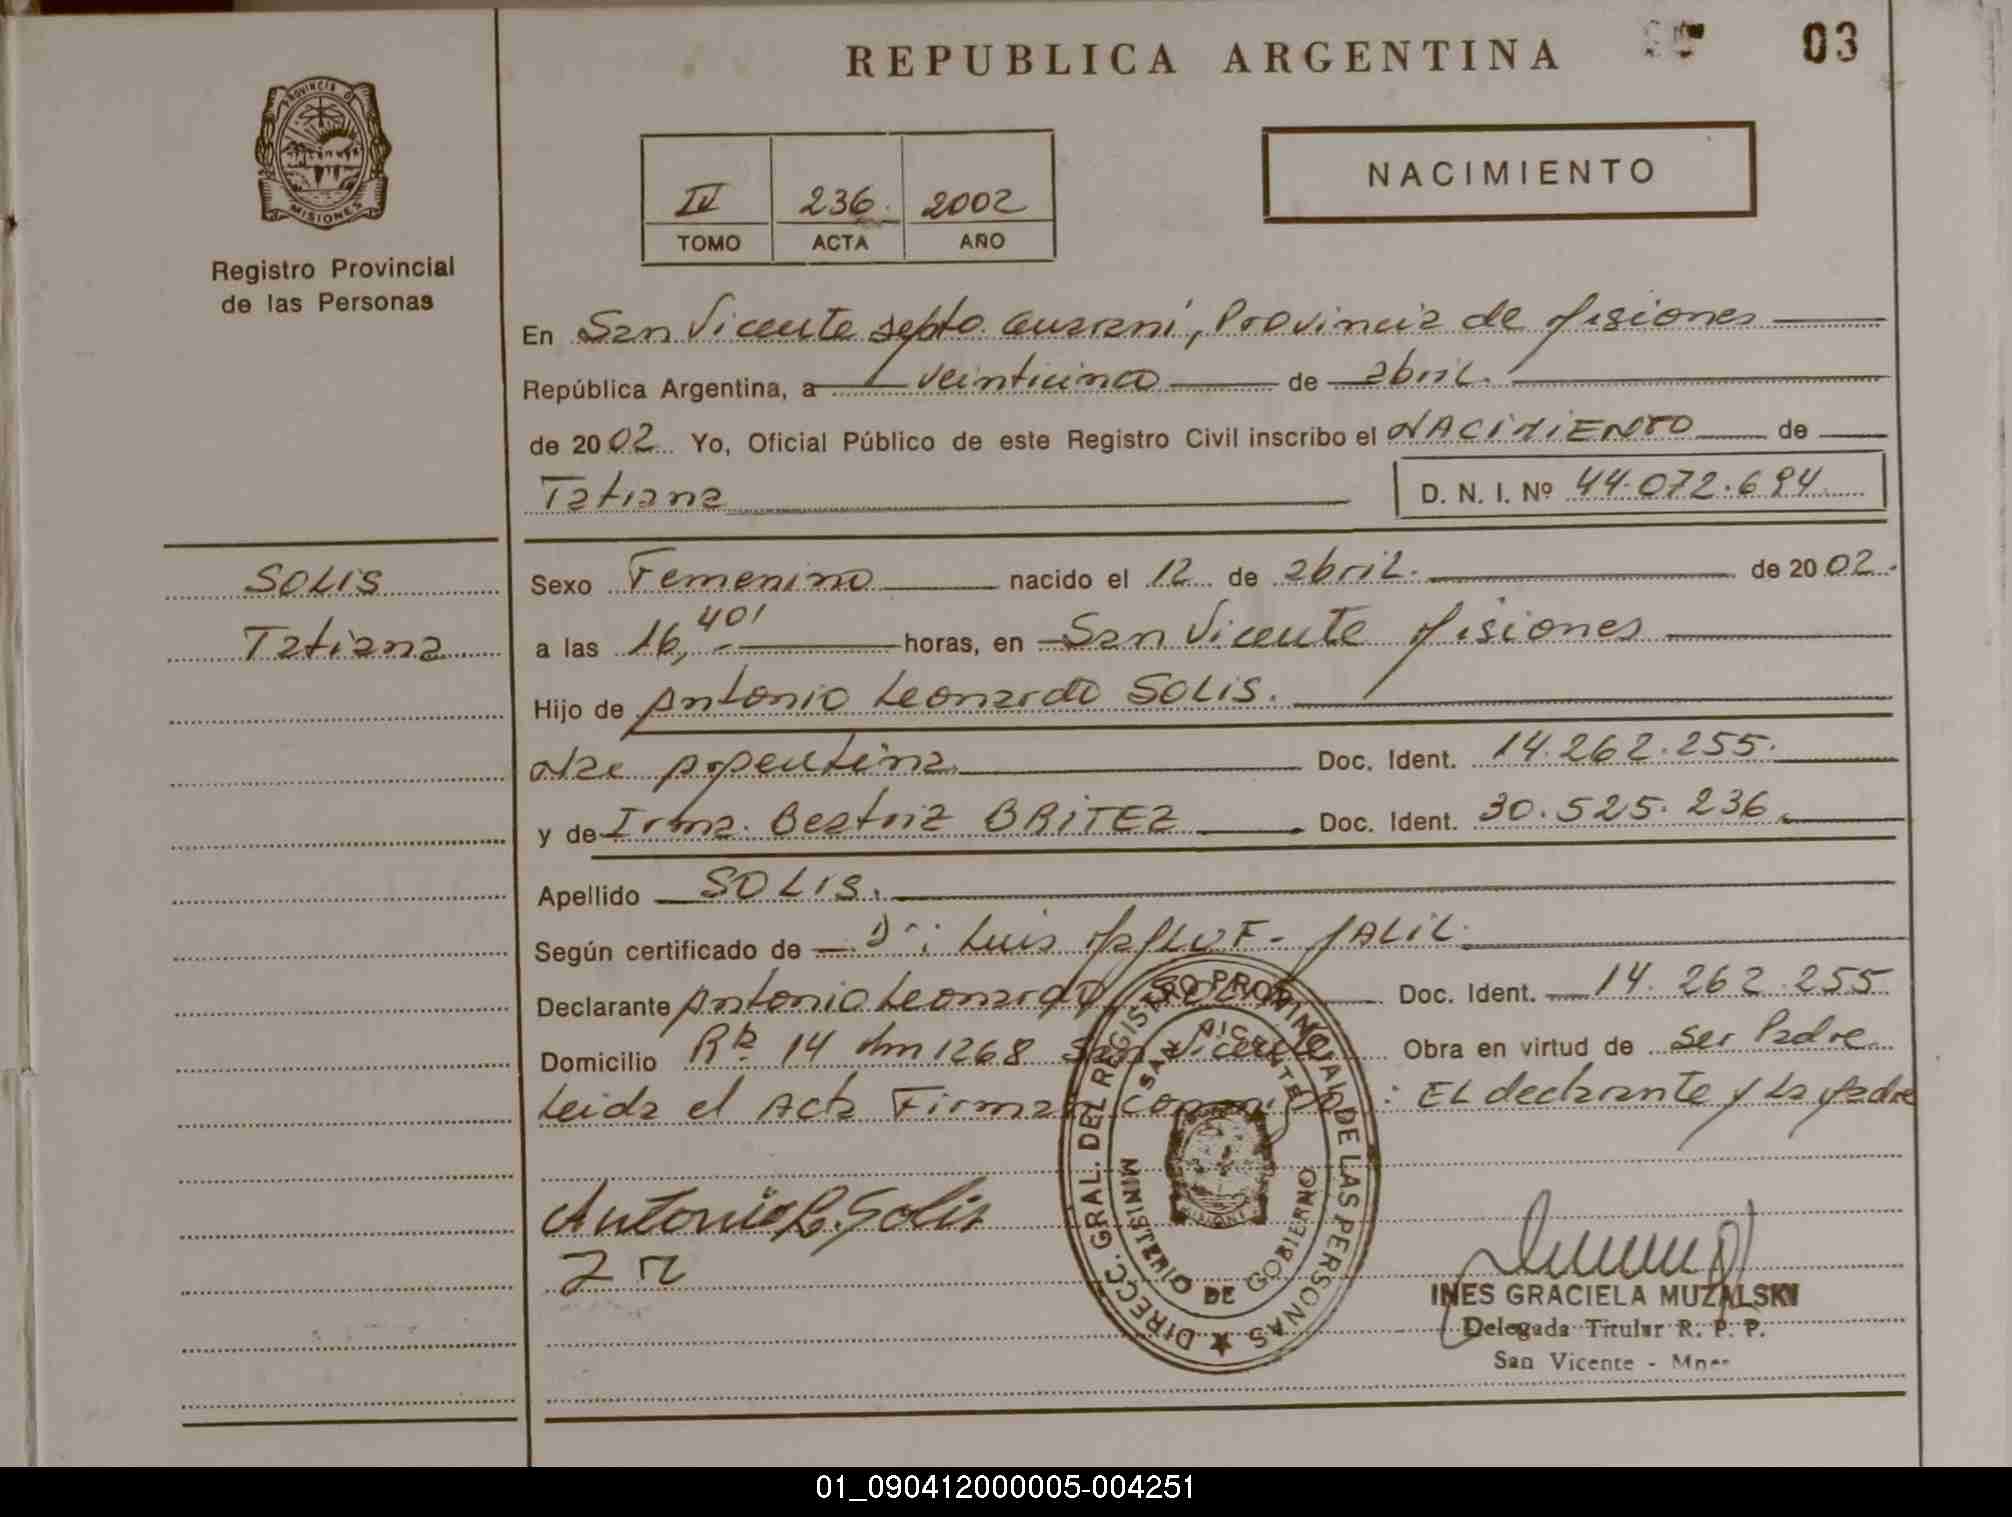 REPUBLICA ARGENTINA
03
PROVINCIA DE
MISIONES
Registro Provincial
de las Personas
IV 236 2002
TOMO ACTA AÑO
NACIMIENTO
En San Vicente Depto. Guaraní, Provincia de Misiones
República Argentina, a veinticinco de abril.
de 2002 Yo, Oficial Público de este Registro Civil inscribo el NACIMIENTO de
Tatiana D. N. I. Nº 44.072.694
SOLIS
Tatiana
Sexo Femenino nacido el 12 de abril. de 2002.
a las 16,40' horas, en San Vicente Misiones
Hijo de Antonio Leonardo SOLIS.
Nac Argentina. Doc. Ident. 14.262.255.
y de Irma. Beatriz BRITEZ Doc. Ident. 30.525.236.
Apellido SOLIS.
Según certificado de Dr: Luis JALIL.
Declarante Antonio Leonardo SOLIS Doc. Ident. 14.262.255
Domicilio Rta 14 Km 1268 San Vicente Obra en virtud de ser Padre
Leida el Acta Firman conmigo: EL declarante y La Madre
DIRECC. GRAL. DEL REGISTRO PROVINCIAL DE LAS PERSONAS
SAN VICENTE
MISIONES
MINISTERIO DE GOBIERNO
Antonio L. Solis
INES GRACIELA MUZALSKI
Delegada Titular R. P. P.
San Vicente - Mnes
01_090412000005-004251